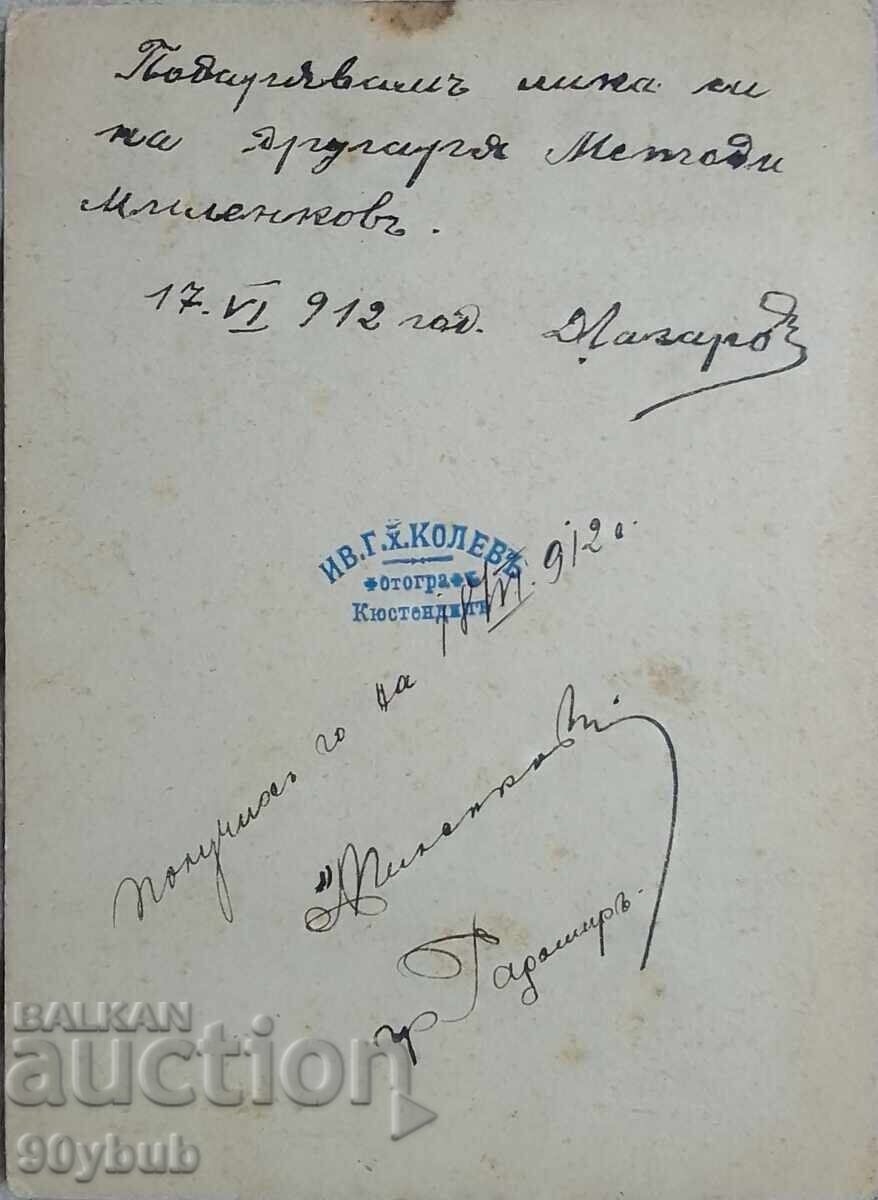 Подарявамъ лика си
на другаря Методи
Миленковъ.
17.VI 912 год. Д Лазаровъ
ИВ.Г.Х.КОЛЕВЪ
Фотографъ
Кюстендилъ
Получихъ го на 18/VI. 912 г.
гр Радомиръ.
BALKAN
auction
90ybub